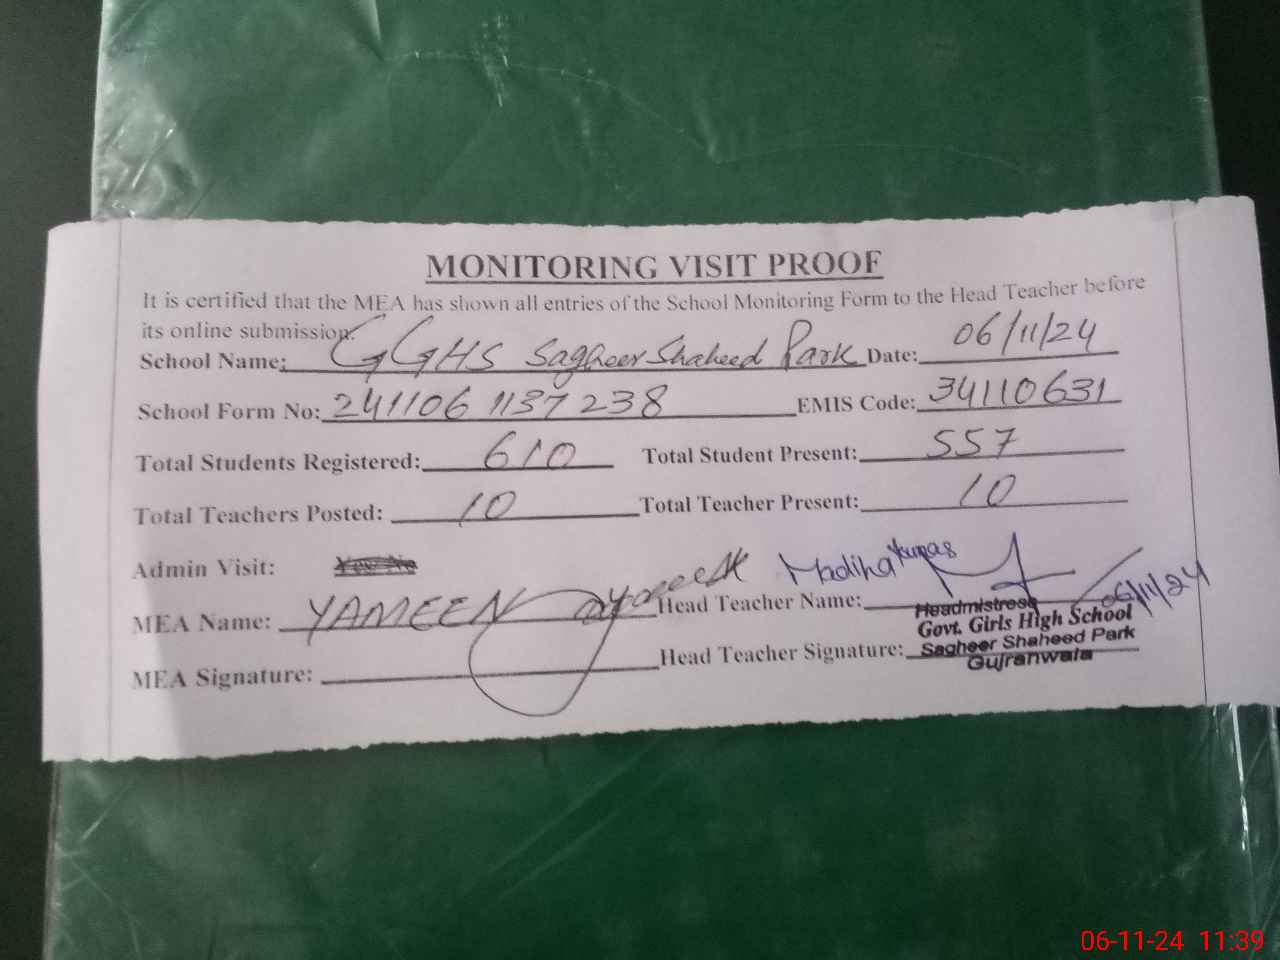 MONITORING VISIT PROOF
It is certified that the MEA has shown all entries of the School Monitoring Form to the Head Teacher before
its online submission.
School Name: GGHS Sagheer Shaheed Park Date: 06/11/24
School Form No: 2411061137238 EMIS Code: 34110631
Total Students Registered: 610 Total Student Present: 557
Total Teachers Posted: 10 Total Teacher Present: 10
Admin Visit:
MEA Name: YAMEEN Head Teacher Name: Madiha
06/11/24
MEA Signature: Head Teacher Signature:
Headmistress
Govt. Girls High School
Sagheer Shaheed Park
Gujranwala
06-11-24 11:39